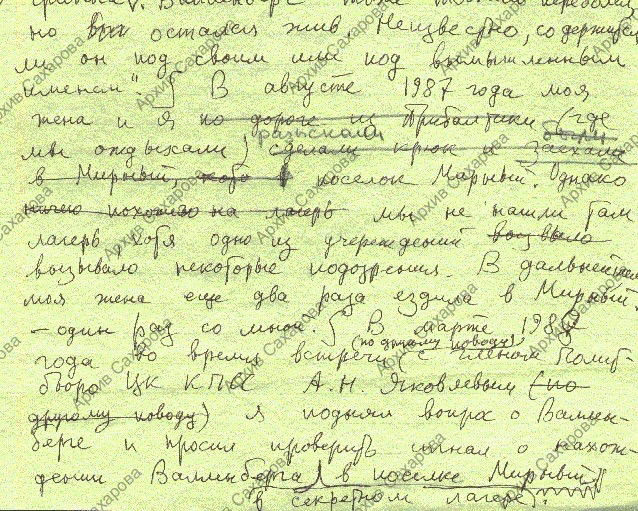 но остался жив. Неизвестно, содержится
ли он под своим или под вымышленным
именем". В августе 1987 года моя
жена и я по дороге из Прибалтики (где
были
мы отдыхали) разыскали сделали крюк и заехали
в Мирный, поселок Мирный. Однако
ничего похожего на лагерь мы не нашли там
лагерь хотя одно из учреждений вызвало
вызывало некоторые подозрения. В дальнейшем
моя жена еще два раза ездила в Мирный.
– один раз со мной. В марте 1988
(по другому поводу)
года во время встречи с членом Полит-
бюро ЦК КПСС А.Н. Яковлевым (по
другому поводу) я поднял вопрос о Валлен-
берге и просил проверить сигнал о нахож-
дении Валленберга в поселке Мирный
в секретном лагере.
Архив Сахарова